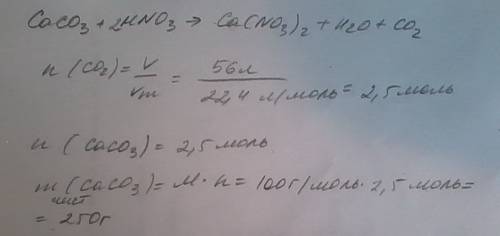 CaCO3 + 2HNO3 → Ca(NO3)2 + H2O + CO2
n (CO2) = V/Vm = 56л/22,4 л/моль = 2,5 моль
n (CaCO3) = 2,5 моль
m (CaCO3) = M · n = 100г/моль · 2,5 моль =
чист
= 250г